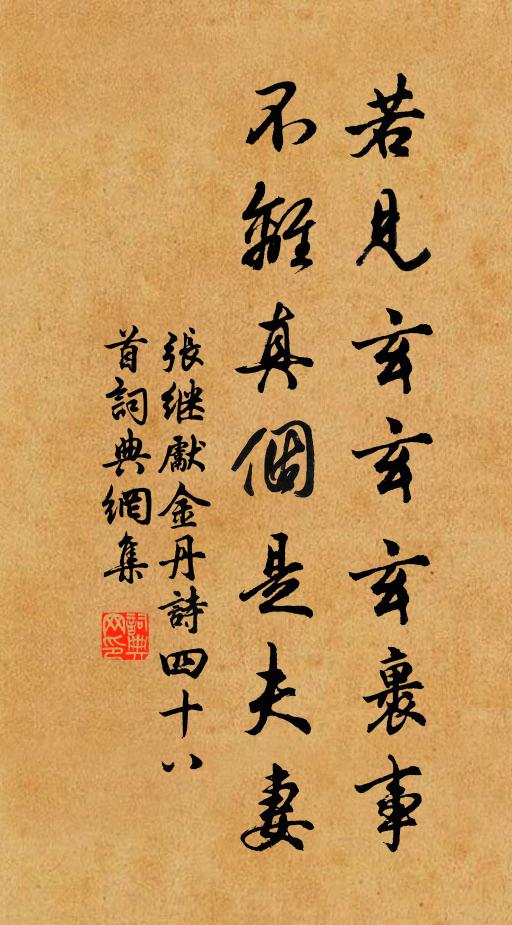 若見玄玄玄裏事
不離真個是夫妻
張继獻金丹詩四十八
首詞典網集
詞典网印